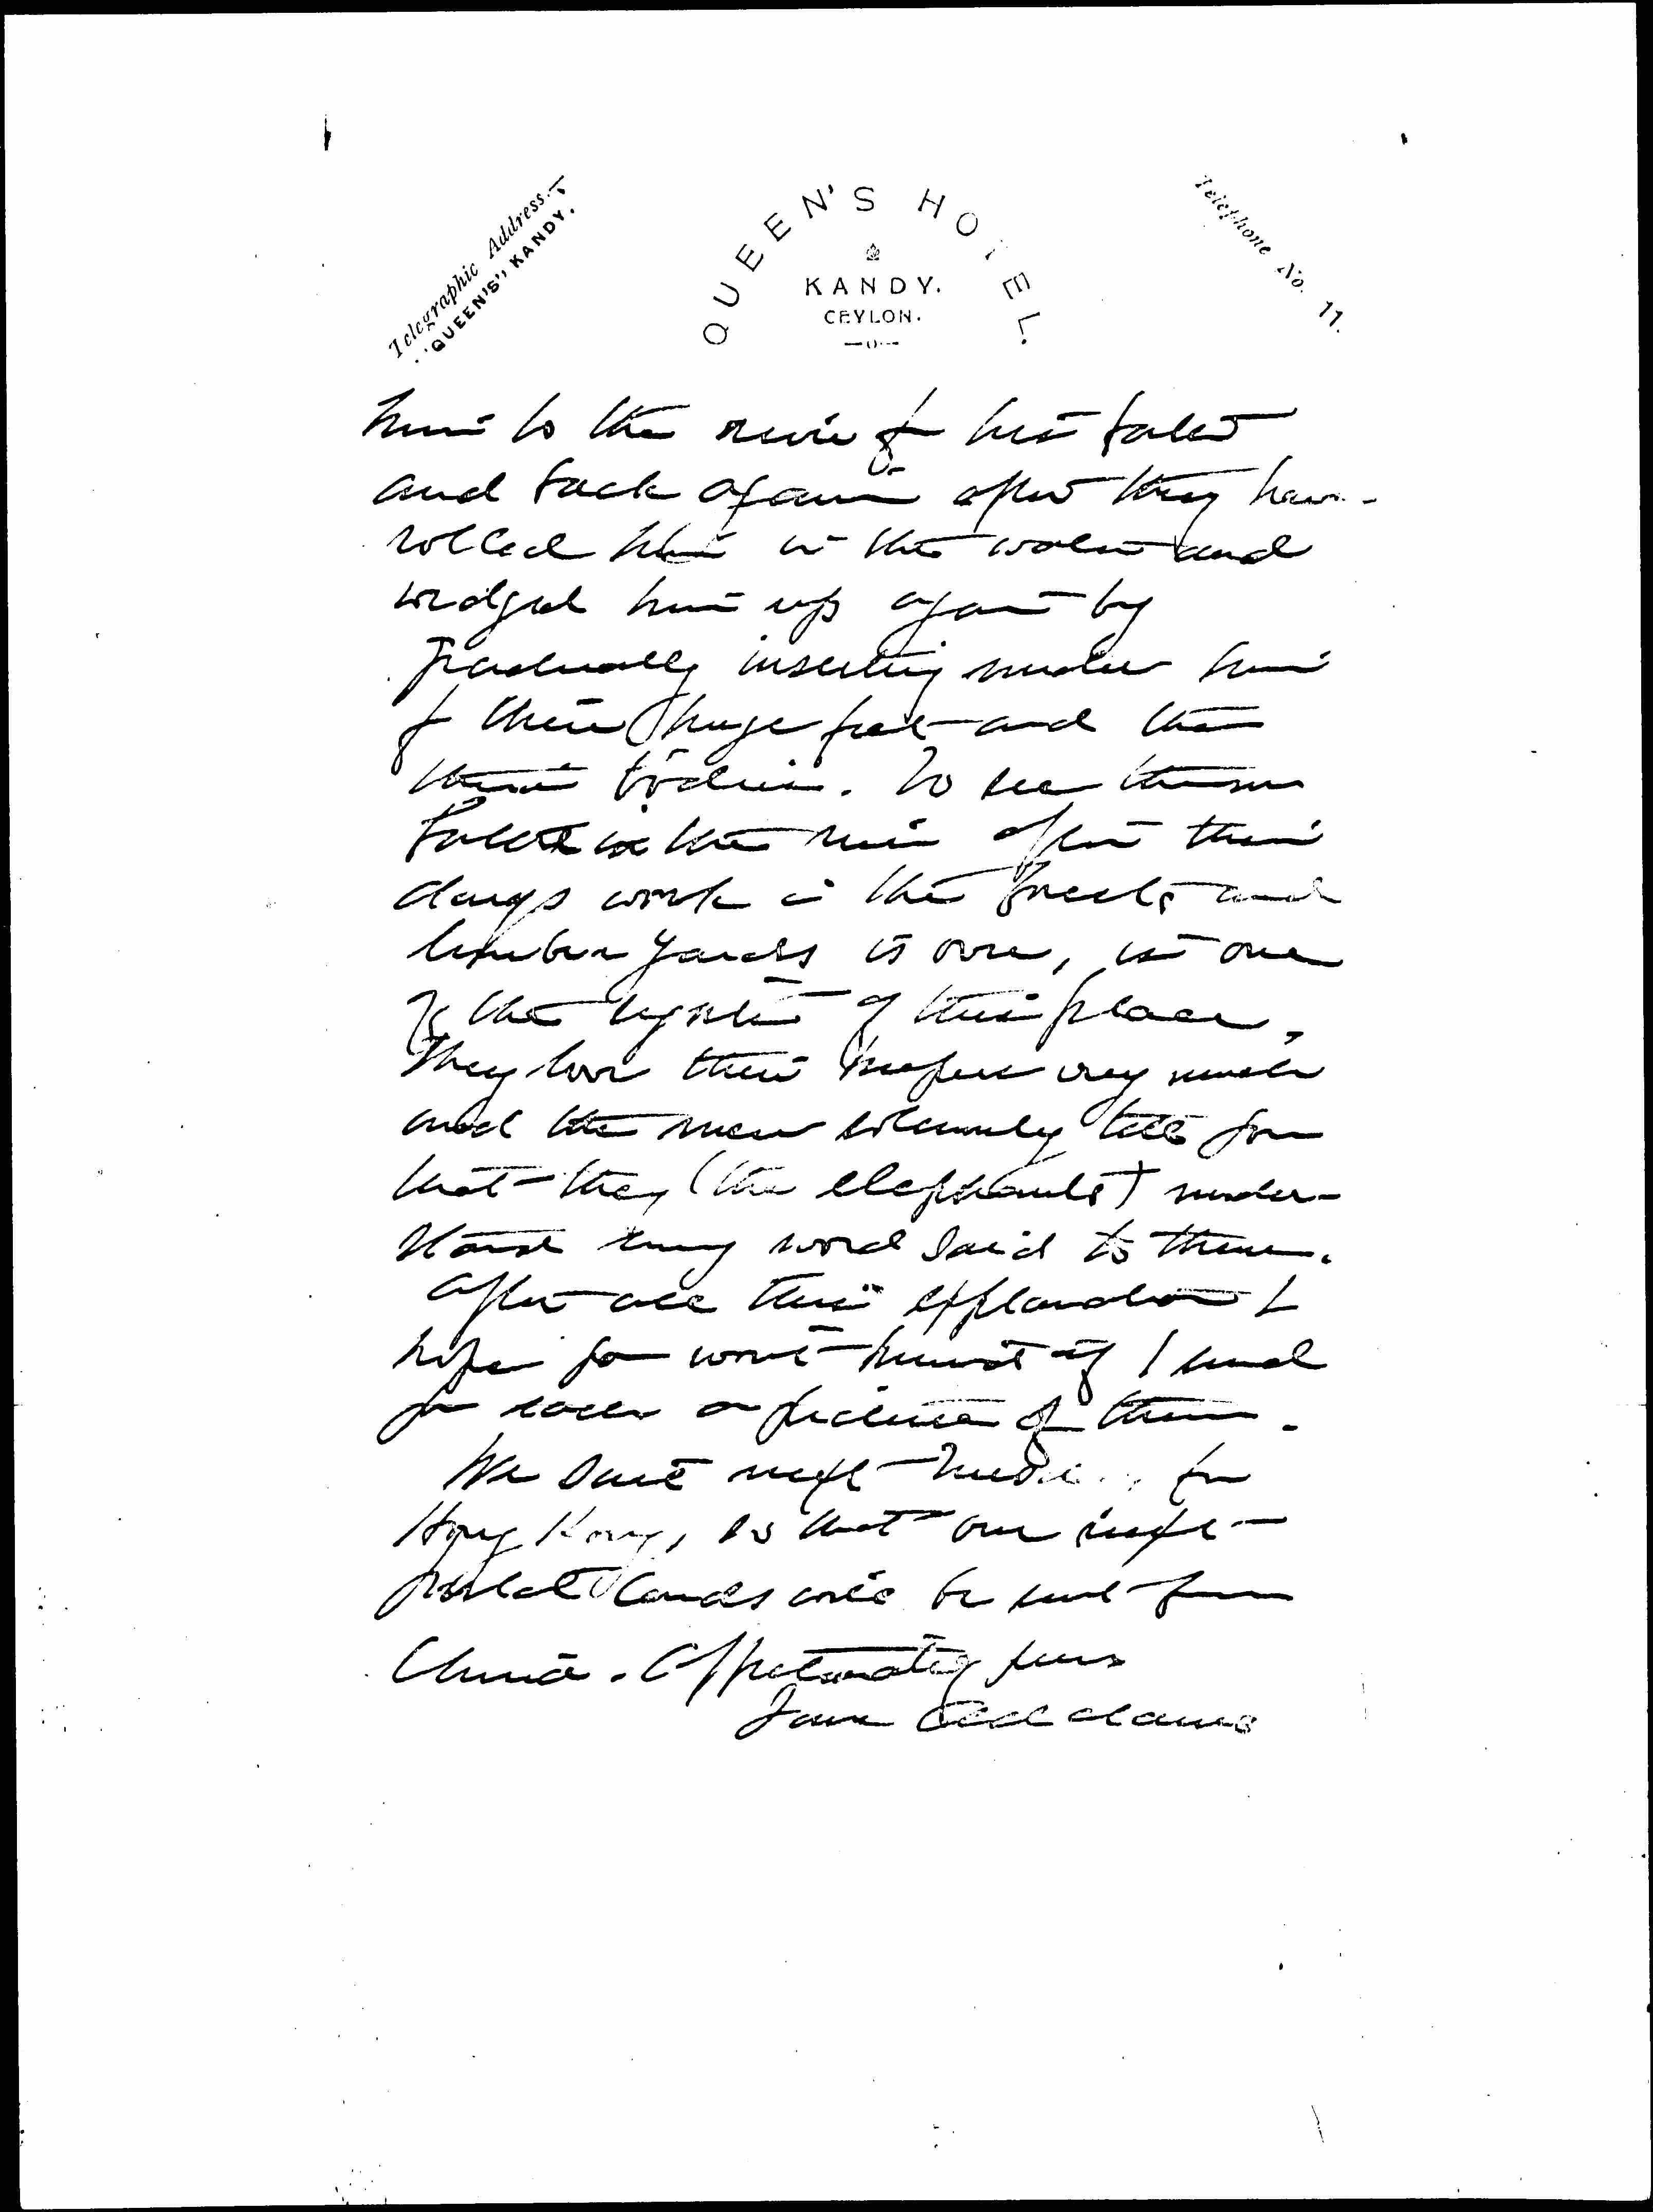 Telegraphic Address:-
"QUEEN'S" KANDY.
QUEEN'S HOTEL.
KANDY.
CEYLON.
Telephone No. 11.
him to the river for his bath
and back again after they have
rolled him in the water and
wedged him up again by
gradually inserting under him
their huge feet and then
their bodies. To see them
bathed in the river after their
days work in the forests and
lumber yards is over, is one
of the sights of this place.
They love their keepers very much
and the men solemnly tell you
that they (the elephants) under-
stand every word said to them.
After all this explanation I
hope you won't mind if I send
you each a picture of them.
We sail next for
Hong Kong, so that our next
postal cards will be sent from
China. Affectionately yours
Jane Addams